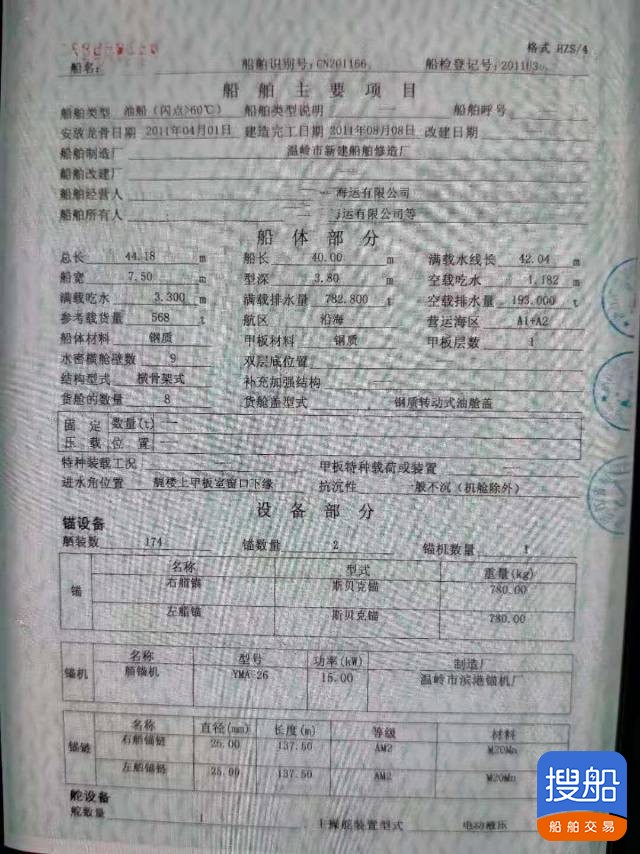 格式 HZS/4
船名: 船舶识别号:CN201166 船检登记号:201103
船舶主要项目
船舶类型 油船(闪点>60℃) 船舶类型说明 — 船舶呼号
安放龙骨日期 2011年04月01日 建造完工日期 2011年08月08日 改建日期
船舶制造厂 温岭市新建船舶修造厂
船舶改建厂 —
船舶经营人 海运有限公司
船舶所有人 海运有限公司等
船体部分
总长 44.18 m 船长 40.00 m 满载水线长 42.04 m
船宽 7.50 m 型深 3.80 m 空载吃水 1.182 m
满载吃水 3.300 m 满载排水量 782.800 t 空载排水量 193.000 t
参考载货量 568 t 航区 沿海 营运海区 A1+A2
船体材料 钢质 甲板材料 钢质 甲板层数 1
水密横舱壁数 9 双层底位置 —
结构型式 横骨架式 补充加强结构 —
货舱的数量 8 货舱盖型式 钢质转动式油舱盖
固定 数量(t) —
压载 位置 —
特种装载工况 — 甲板特种载荷或装置 —
进水角位置 艉楼上甲板室窗口下缘 抗沉性 一般不沉(机舱除外)
设备部分
锚设备
舾装数 174 锚数量 2 锚机数量 1
锚 名称 型式 重量(kg)
右艏锚 斯贝克锚 780.00
左艏锚 斯贝克锚 780.00
锚机 名称 型号 功率(kW) 制造厂
艏锚机 YMA 26 15.00 温岭市滨港锚机厂
锚链 名称 直径(mm) 长度(m) 等级 材料
右艏锚链 26.00 137.50 AM2 M20Mn
左艏锚链 26.00 137.50 AM2 M20Mn
舵设备
舵数量 1 主操舵装置型式 电动液压
搜船
船舶交易